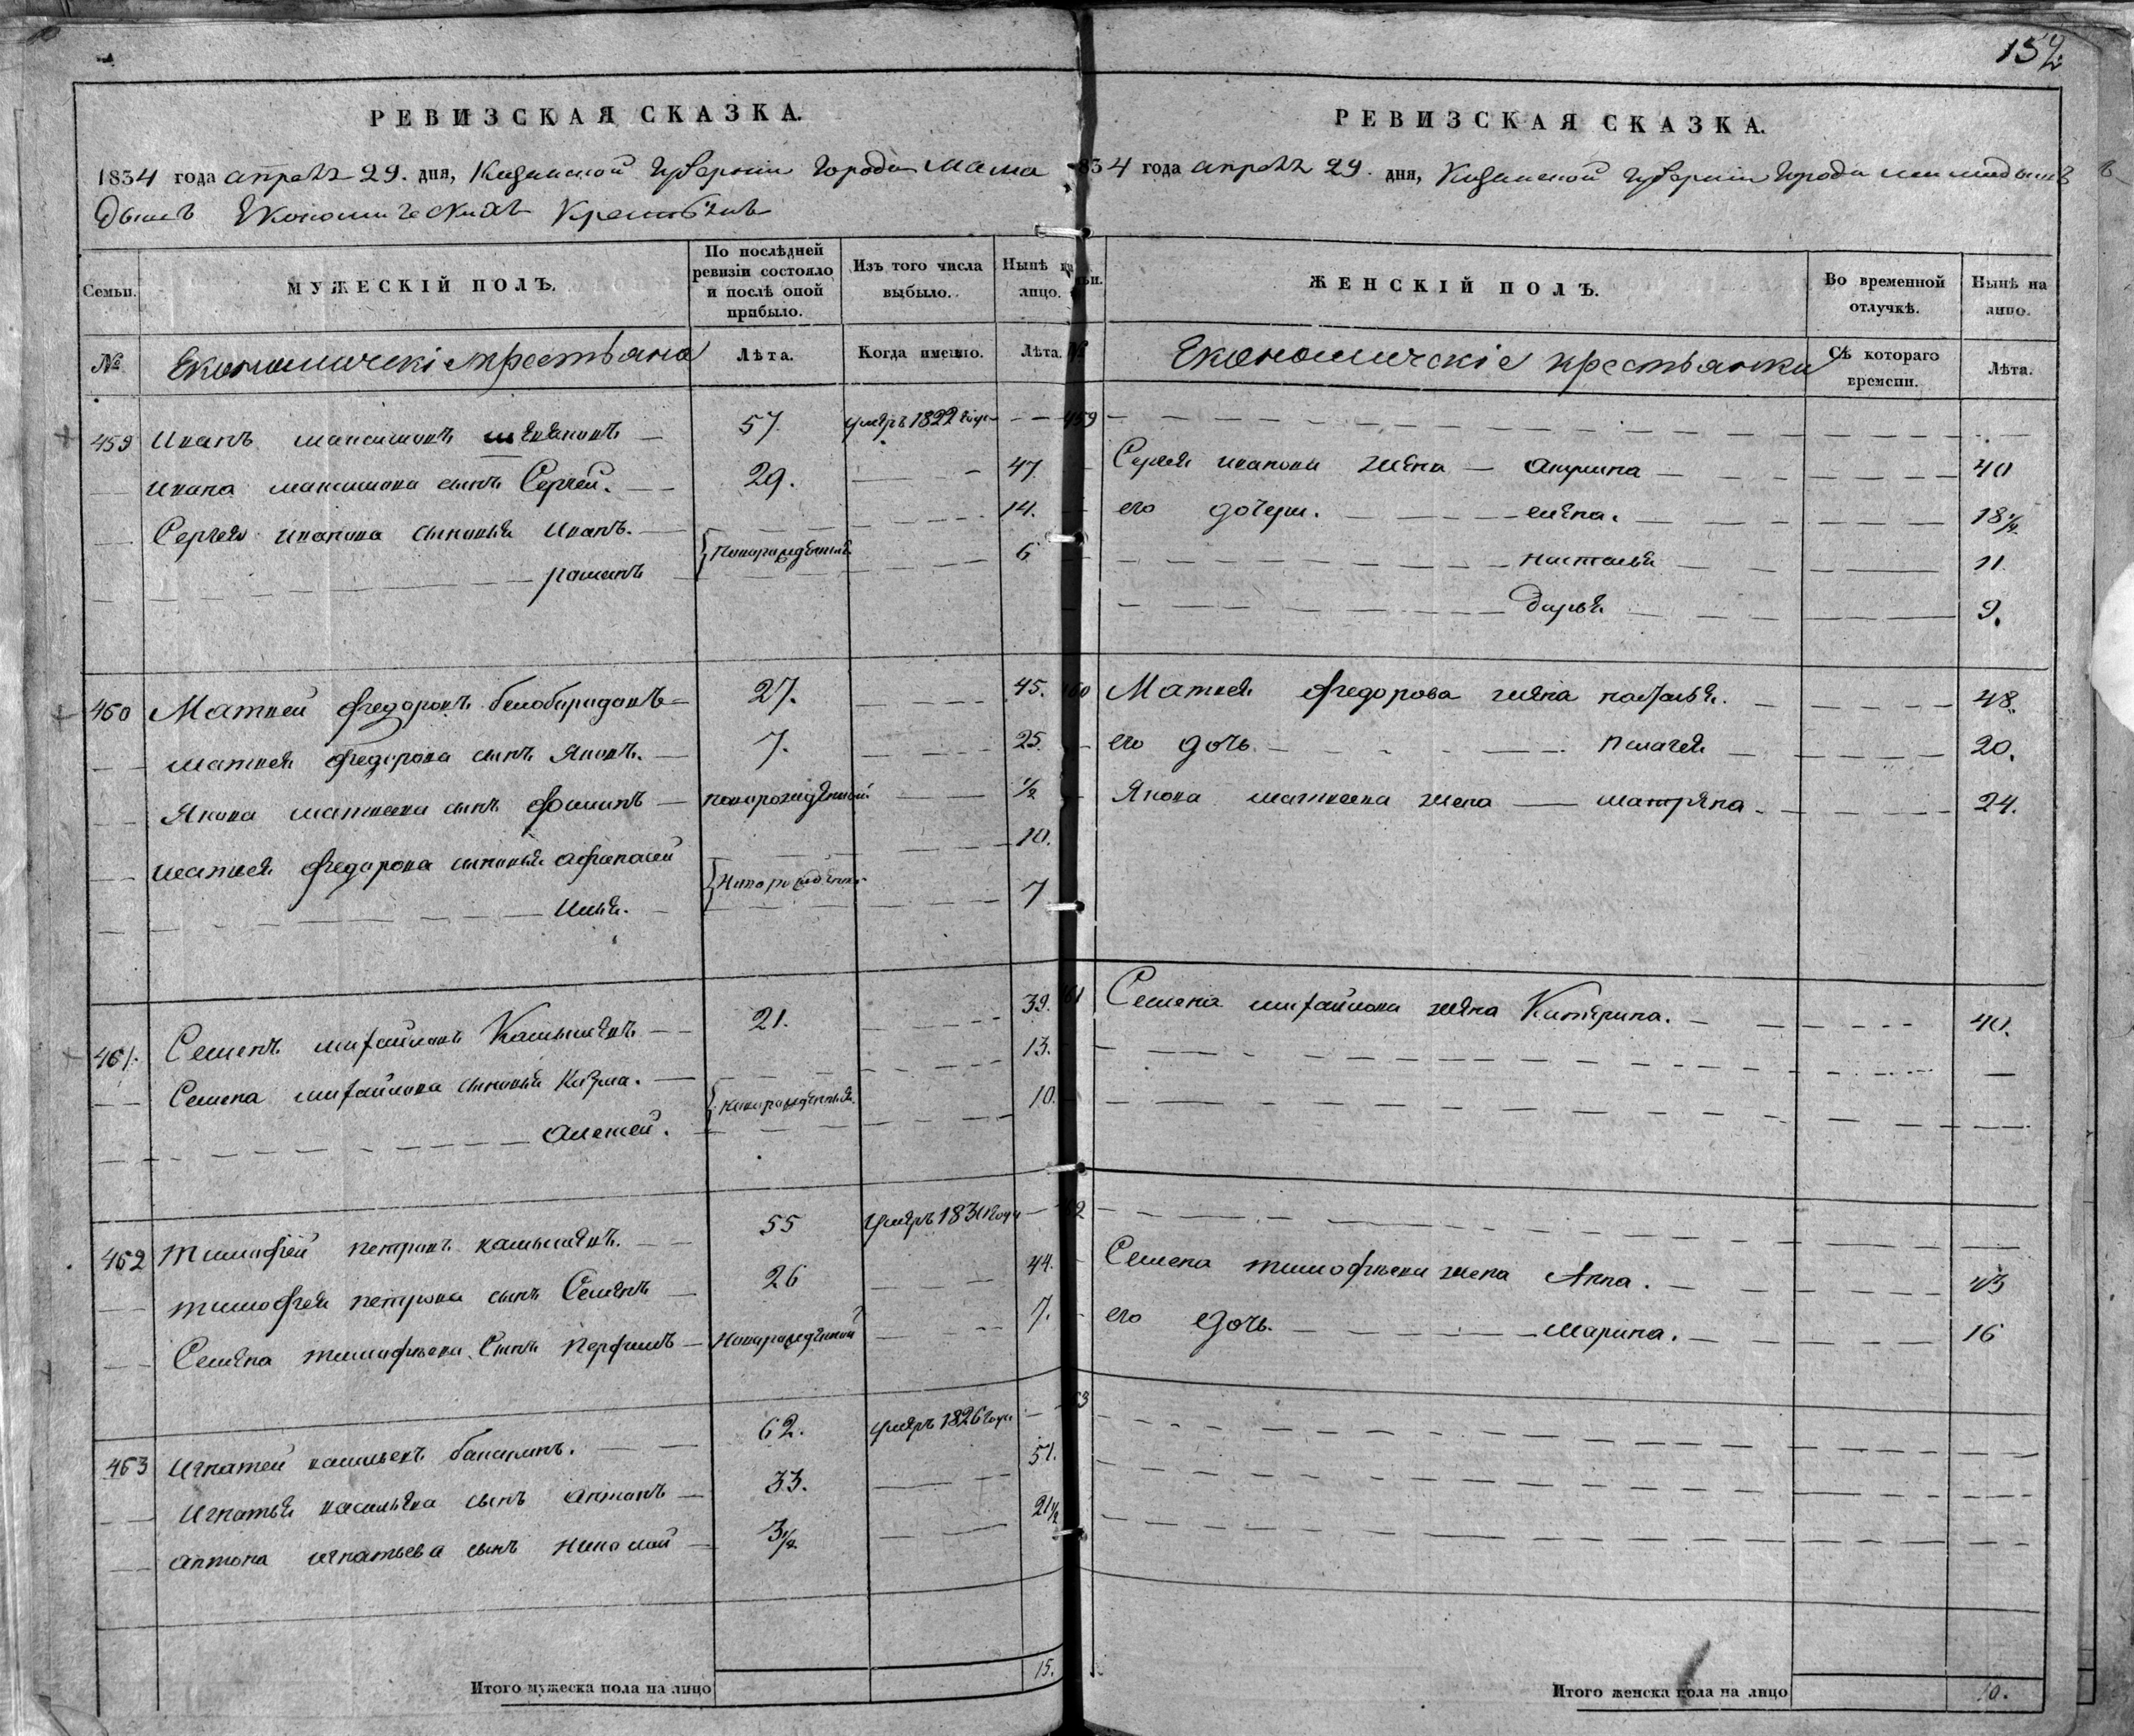 152
РЕВИЗСКАЯ СКАЗКА.
1834 года апреля 29. дня, Казанской Губернии Города Мама
дышъ Економическихъ Крестьянъ
Семьи. МУЖЕСКІЙ ПОЛЪ. По послѣдней ревизіи состояло и послѣ оной прибыло. Изъ того числа выбыло. Нынѣ на лицо.
№ Економическіе крестьяна Лѣта. Когда именно. Лѣта.
459 Иванъ максимовъ 57 умеръ 1822 года — —
Ивана максимова сынъ Сергей. 29. — 47
Сергея иванова сыновья Иванъ. 14.
романъ Новорожденныя 6
460 Матвей федоровъ белобородовъ 27. — 45.
матвея федорова сынъ Яковъ. 7. — 25.
Якова матвеева сынъ фоминъ новорожденный — 1/2
матвея федорова сыновья афонасей 10.
Илья. Новорожденныя 7
461. Семенъ михайловъ Камышевъ 21. — 39.
Семена михайлова сыновья Кузма. 13.
Алексей. новорожденныя 10.
462 Тимофей петровъ камышевъ. 55 умеръ 1831 года —
тимофея петрова сынъ Семенъ 26 — 44.
Семена тимофеева Сынъ Перфилъ Новорожденной — 7.
463 Игнатей васильевъ 62. умеръ 1826 года —
Игнатья васильева сынъ антонъ 33. — 51.
антона игнатьева сынъ николай 3 1/2 — 21 1/2
Итого мужеска пола на лицо 15.
РЕВИЗСКАЯ СКАЗКА.
834 года апреля 29. дня, Казанской Губернии Города мамадышъ
ЖЕНСКІЙ ПОЛЪ. Во временной отлучкѣ. Нынѣ на лицо.
Економическіе крестьянки Съ котораго времени. Лѣта.
459
Сергея иванова жена — акулина 40
его дочери. елена. 18 1/2
настасья 11
дарья 9.
460 Матвея федорова жена наталья. 48.
его дочь пелагея 20.
Якова матвеева жена — матрена 24.
461 Семена михайлова жена Катерина. 40.
62
Семена тимофеева жена Анна. 43
его дочь. марина. 16
63
Итого женска пола на лицо 10.